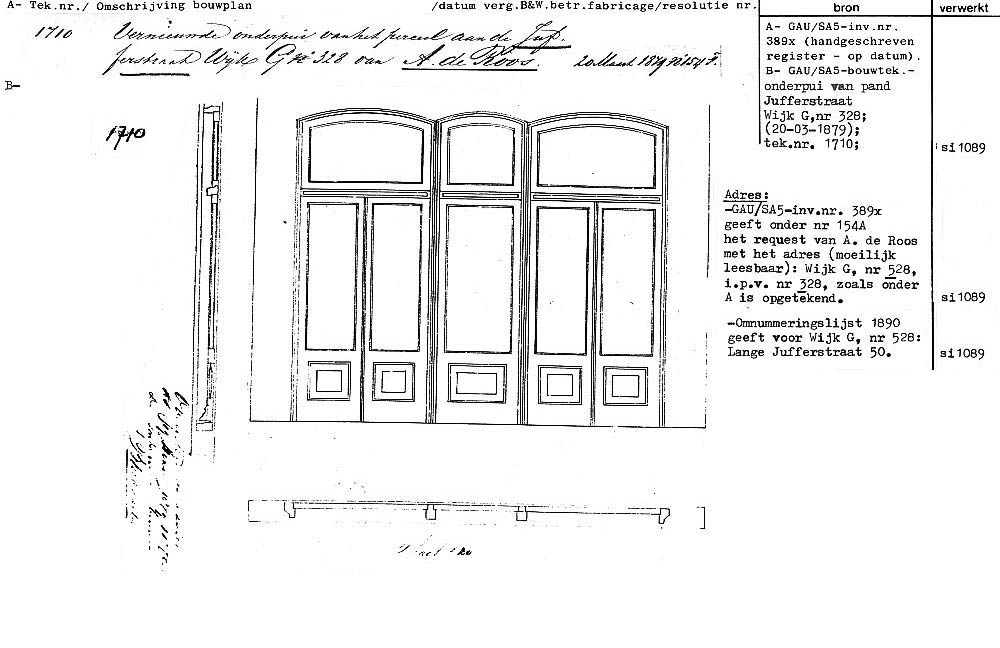 A- Tek.nr./ Omschrijving bouwplan /datum verg.B&W.betr.fabricage/resolutie nr.
bron
verwerkt
1710 Vernieuwde onderpui van het perceel aan de Juf-
ferstraat Wijk G No 328 van A. de Roos. 20 Maart 1879 No 154 F.
B-
1710
A- GAU/SA5-inv.nr.
389x (handgeschreven
register - op datum).
B- GAU/SA5-bouwtek.-
onderpui van pand
Jufferstraat
Wijk G,nr 328;
(20-03-1879);
tek.nr. 1710;
si1089
Adres:
-GAU/SA5-inv.nr. 389x
geeft onder nr 154A
het request van A. de Roos
met het adres (moeilijk
leesbaar): Wijk G, nr 528,
i.p.v. nr 328, zoals onder
A is opgetekend.
si1089
-Omnummeringslijst 1890
geeft voor Wijk G, nr 528:
Lange Jufferstraat 50.
si1089